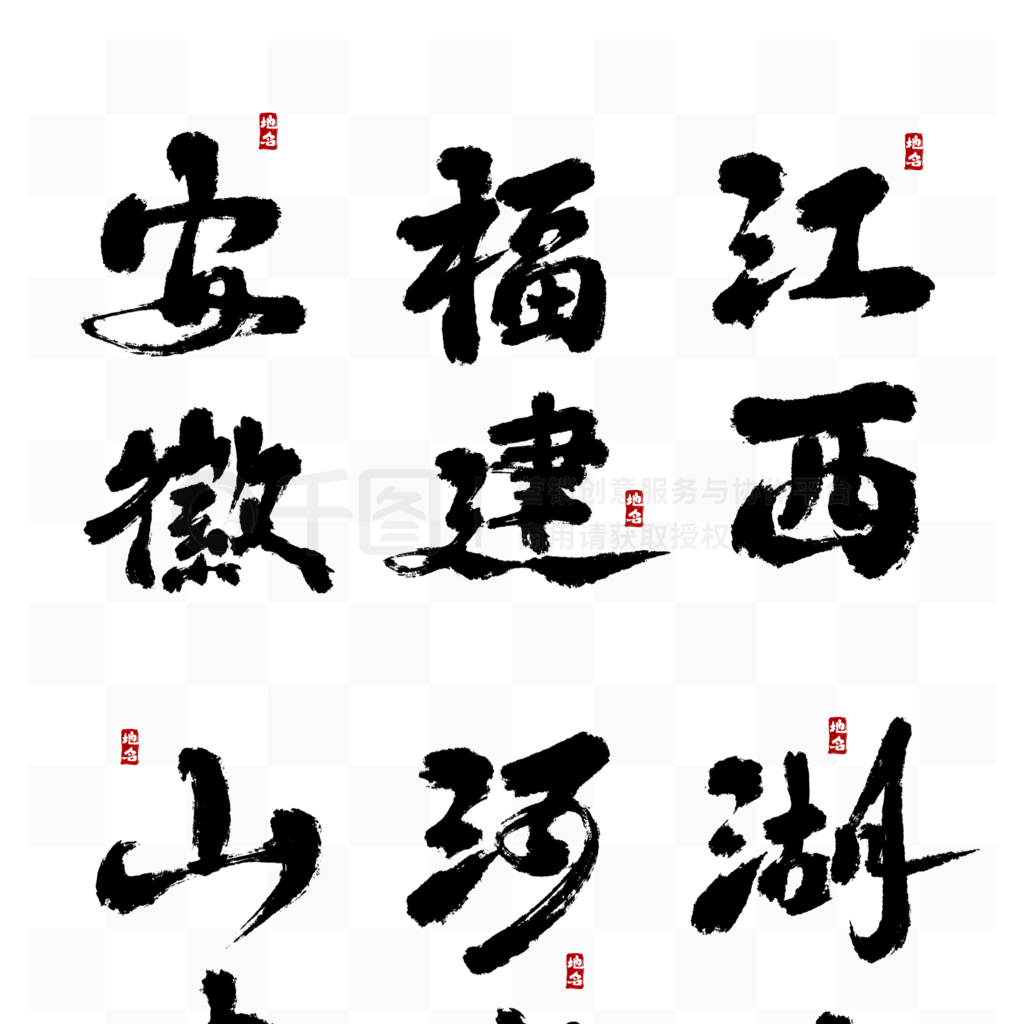 安徽
地名
福建
地名
江西
地名
山
地名
河
地名
湖
地名
千图
营销创意服务与协作平台
商用请获取授权